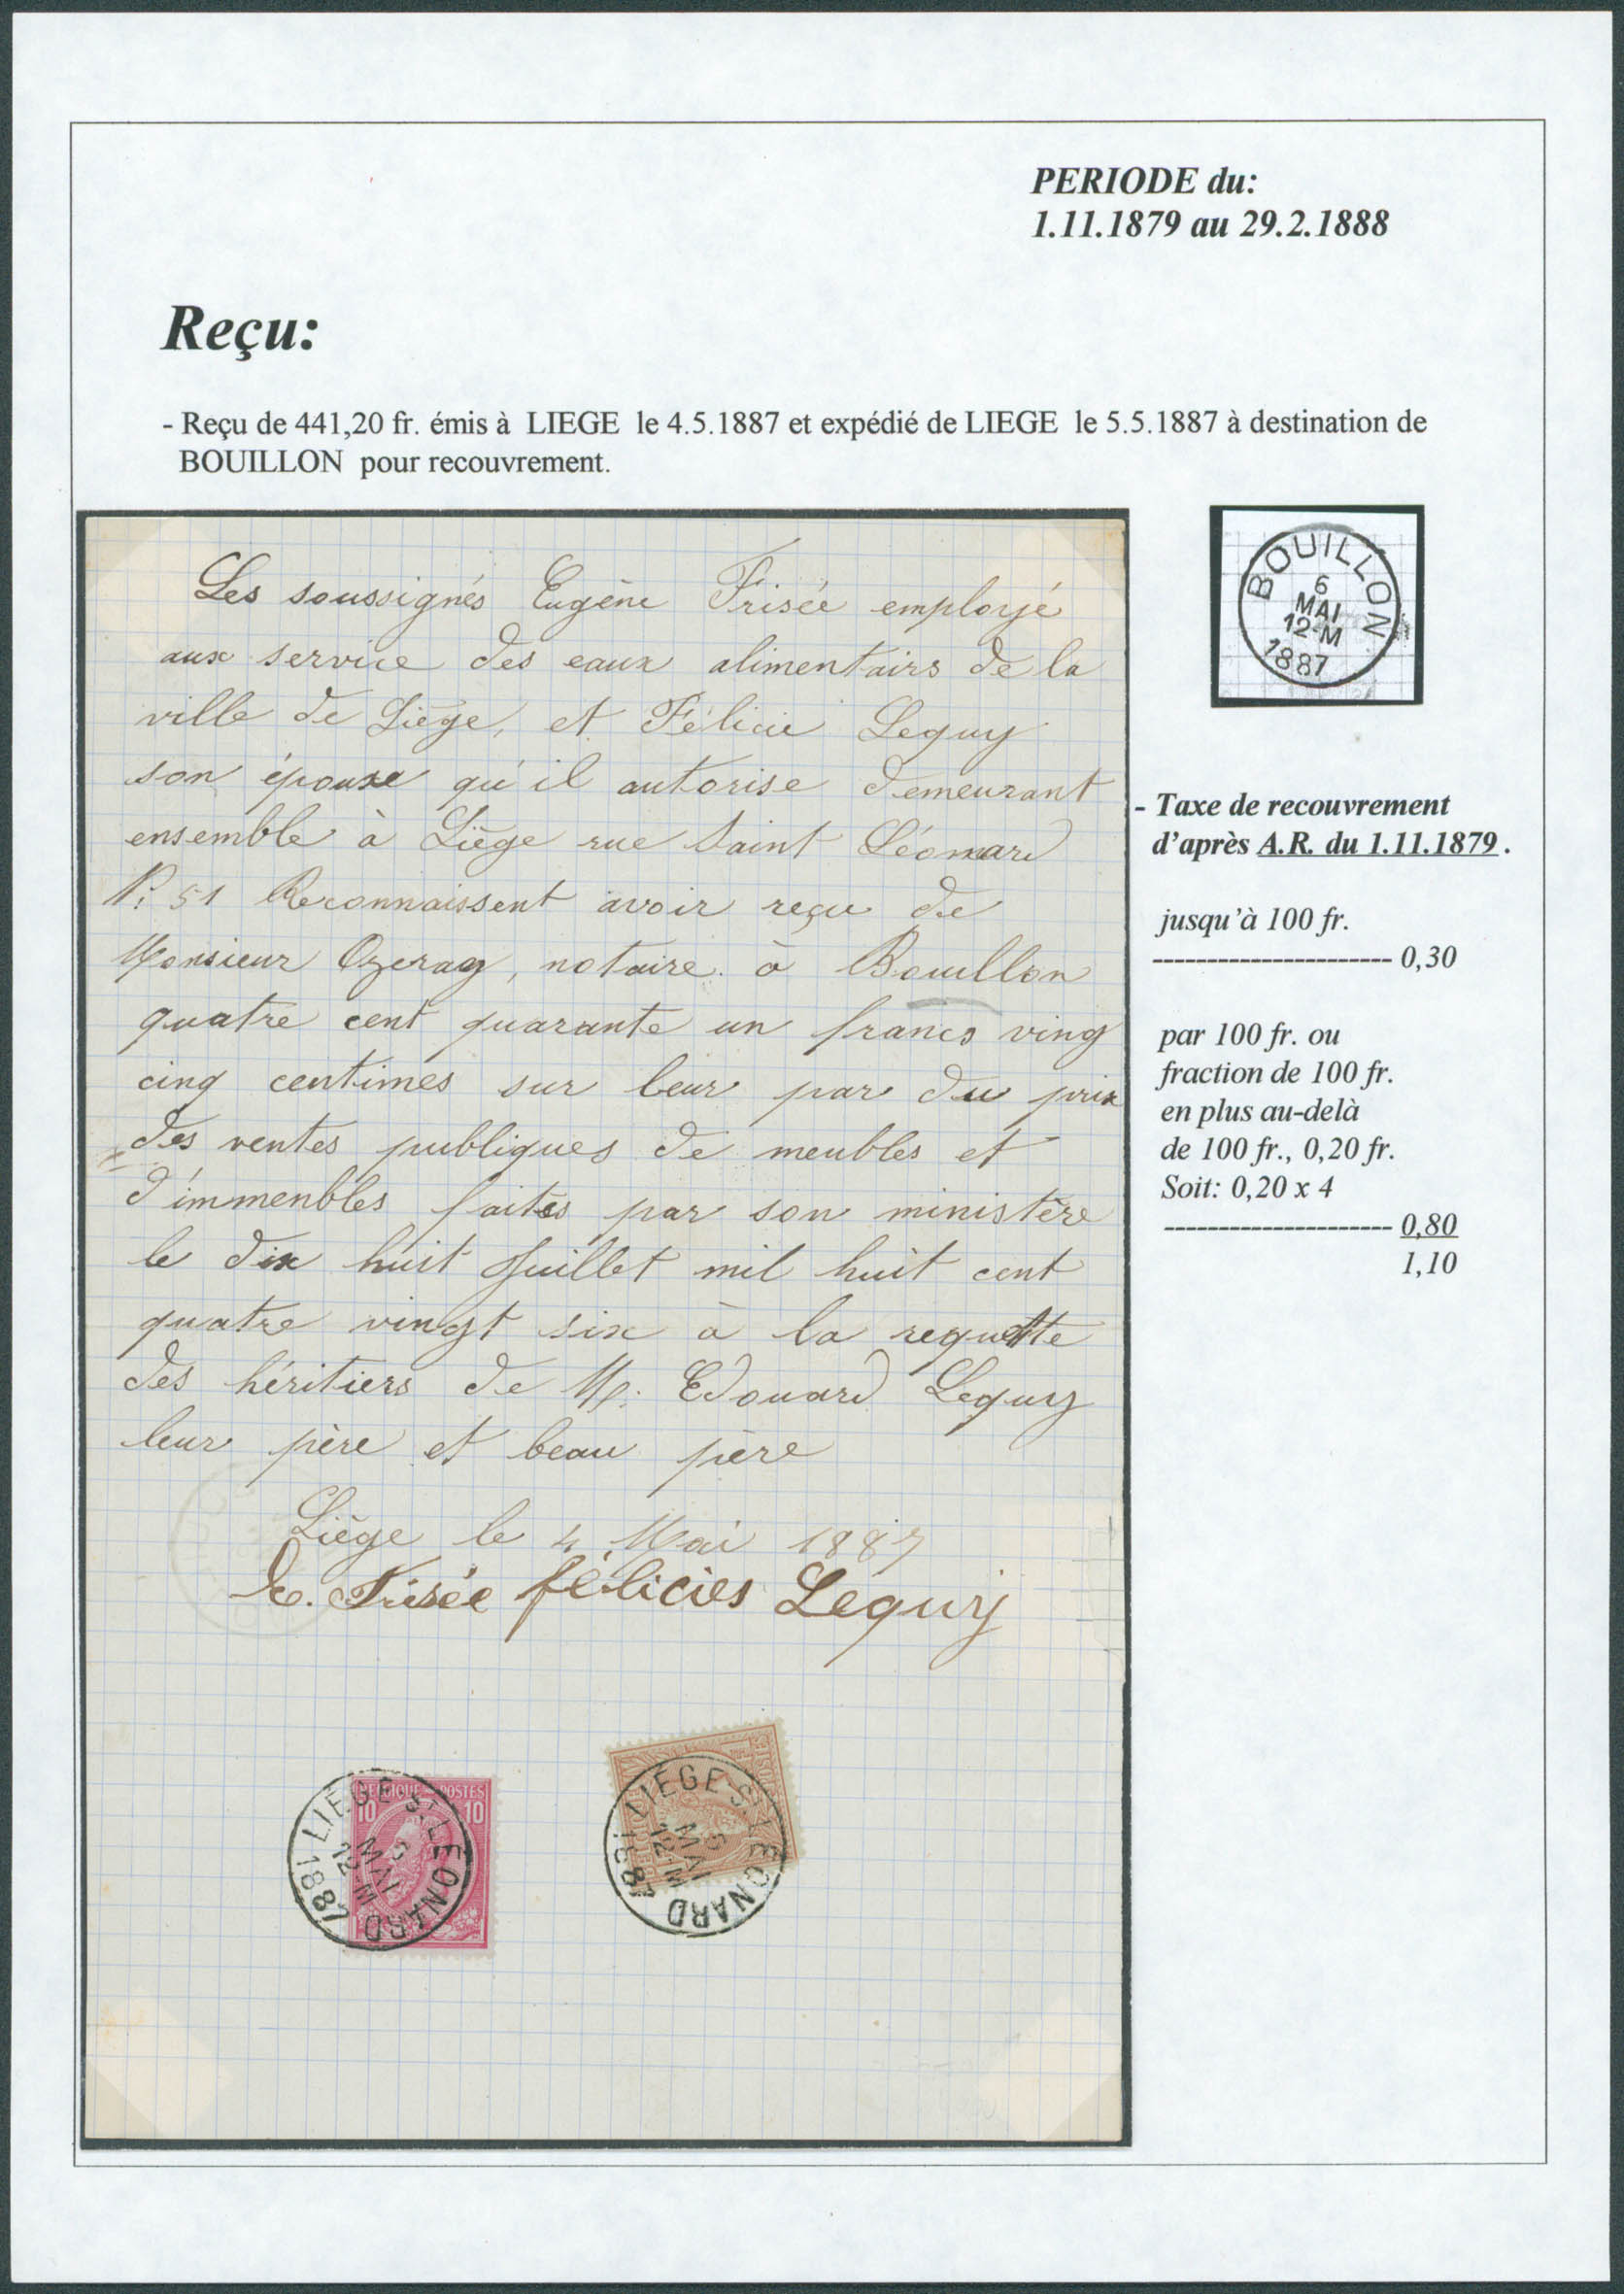 PERIODE du:
1.11.1879 au 29.2.1888
Reçu:
- Reçu de 441,20 fr. émis à LIEGE le 4.5.1887 et expédié de LIEGE le 5.5.1887 à destination de
BOUILLON pour recouvrement.
Les soussignés Eugène Frisée employé
aux service des eaux alimentairs de la
ville de Liège, et Félicie Leguy
son épouse qu'il autorise demeurant
ensemble à Liège rue Saint Léonard
N: 51 Reconnaissent avoir reçu de
Monsieur Ozeray, notaire à Bouillon
quatre cent quarante un francs ving
cinq centimes sur leur par du prix
des ventes publiques de meubles et
d'immenbles faites par son ministère
le dix huit Juillet mil huit cent
quatre vingt six à la requette
des héritiers de M. Edouard Leguy
leur père et beau père
Liège le 4 Mai 1887
E. Frisée félicies Leguy
BELGIQUE POSTES
10 10
LIÉGE ST LÉONARD
5
MAI
12-M
1887
LIÉGE ST LÉONARD
5
MAI
12-M
1887
BOUILLON
6
MAI
12-M
1887
- Taxe de recouvrement
d'après A.R. du 1.11.1879.
jusqu'à 100 fr.
---------------------- 0,30
par 100 fr. ou
fraction de 100 fr.
en plus au-delà
de 100 fr., 0,20 fr.
Soit: 0,20 x 4
--------------------- 0,80
1,10